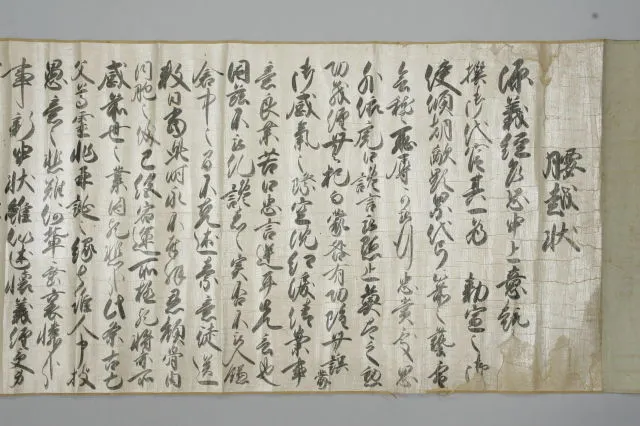 腰越状
源義経乍恐申上意趣
撰御代官其一為 勅宣之御
使傾朝敵顕累代弓箭之藝雪
会稽恥辱可被行忠賞處思
外依虎口讒言被黙止莫太之勲
功義経無犯而蒙咎有功雖無誤蒙
御感氣之際空沈紅涙倩案事
意良薬苦口忠言逆耳先言也
因茲不被糺讒者之実否不被入鎌
倉中之間不能述素意徒送
数日當此時永不奉拝恩顔骨肉
同胞之儀已 宿運所極歟将亦
感先世之業因歟悲哉此条故亡
父尊霊非再誕之縁者誰人申披
愚意之悲歎何輩垂哀憐
事新申状雖似述懐義経